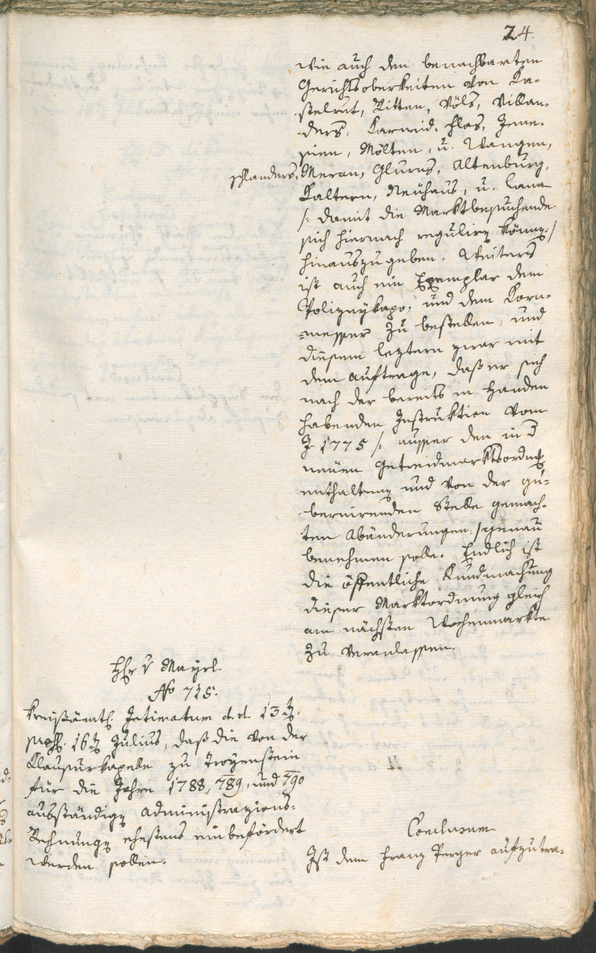 24.
wie auch den benachbarten
Gerichtsobrkeiten von Ka-
stelrut, Ritten, Völs, Villan-
ders, Karneid, Jene-
sien, Mölten, u. Wangen,
schlanders, Meran, Glurns, Altenburg,
Kaltern, Neuhaus, u. Lana
/: damit die Marktbesuchende
sich hiernach reguliren können :/
hinauszugeben. Weiters
ist auch ein Exemplar dem
Polizeykapo: und dem Korn-
messer zu bestellen, und
diesem leztern zwar mit
dem Auftrage, daß er sich
nach der bereits in Handen
habenden Instruktion vom
J 1775 /: ausser den in d
neuen Getreidmarktsordnung
enthaltenen und von der gu-
bernirenden Stelle gemach-
ten Abänderungen :/ genau
benehmen solle. Endlich ist
die öffentliche Kundmachung
dieser Marktordnung gleich
am nächsten Wochenmarkte
zu veranlassen.
Hr v Mayrl
No 715.
Kreisämtl. Intimatum d.d. 13t.
16t Julius, daß die von der
Clausurkapele zu
für die Jahre 1788, 789, und 790
ausständige Administrazions-
Rechnungen ehestens einbefördert
werden sollen.
Conclusum
Ist dem Franz Perger aufzutra-